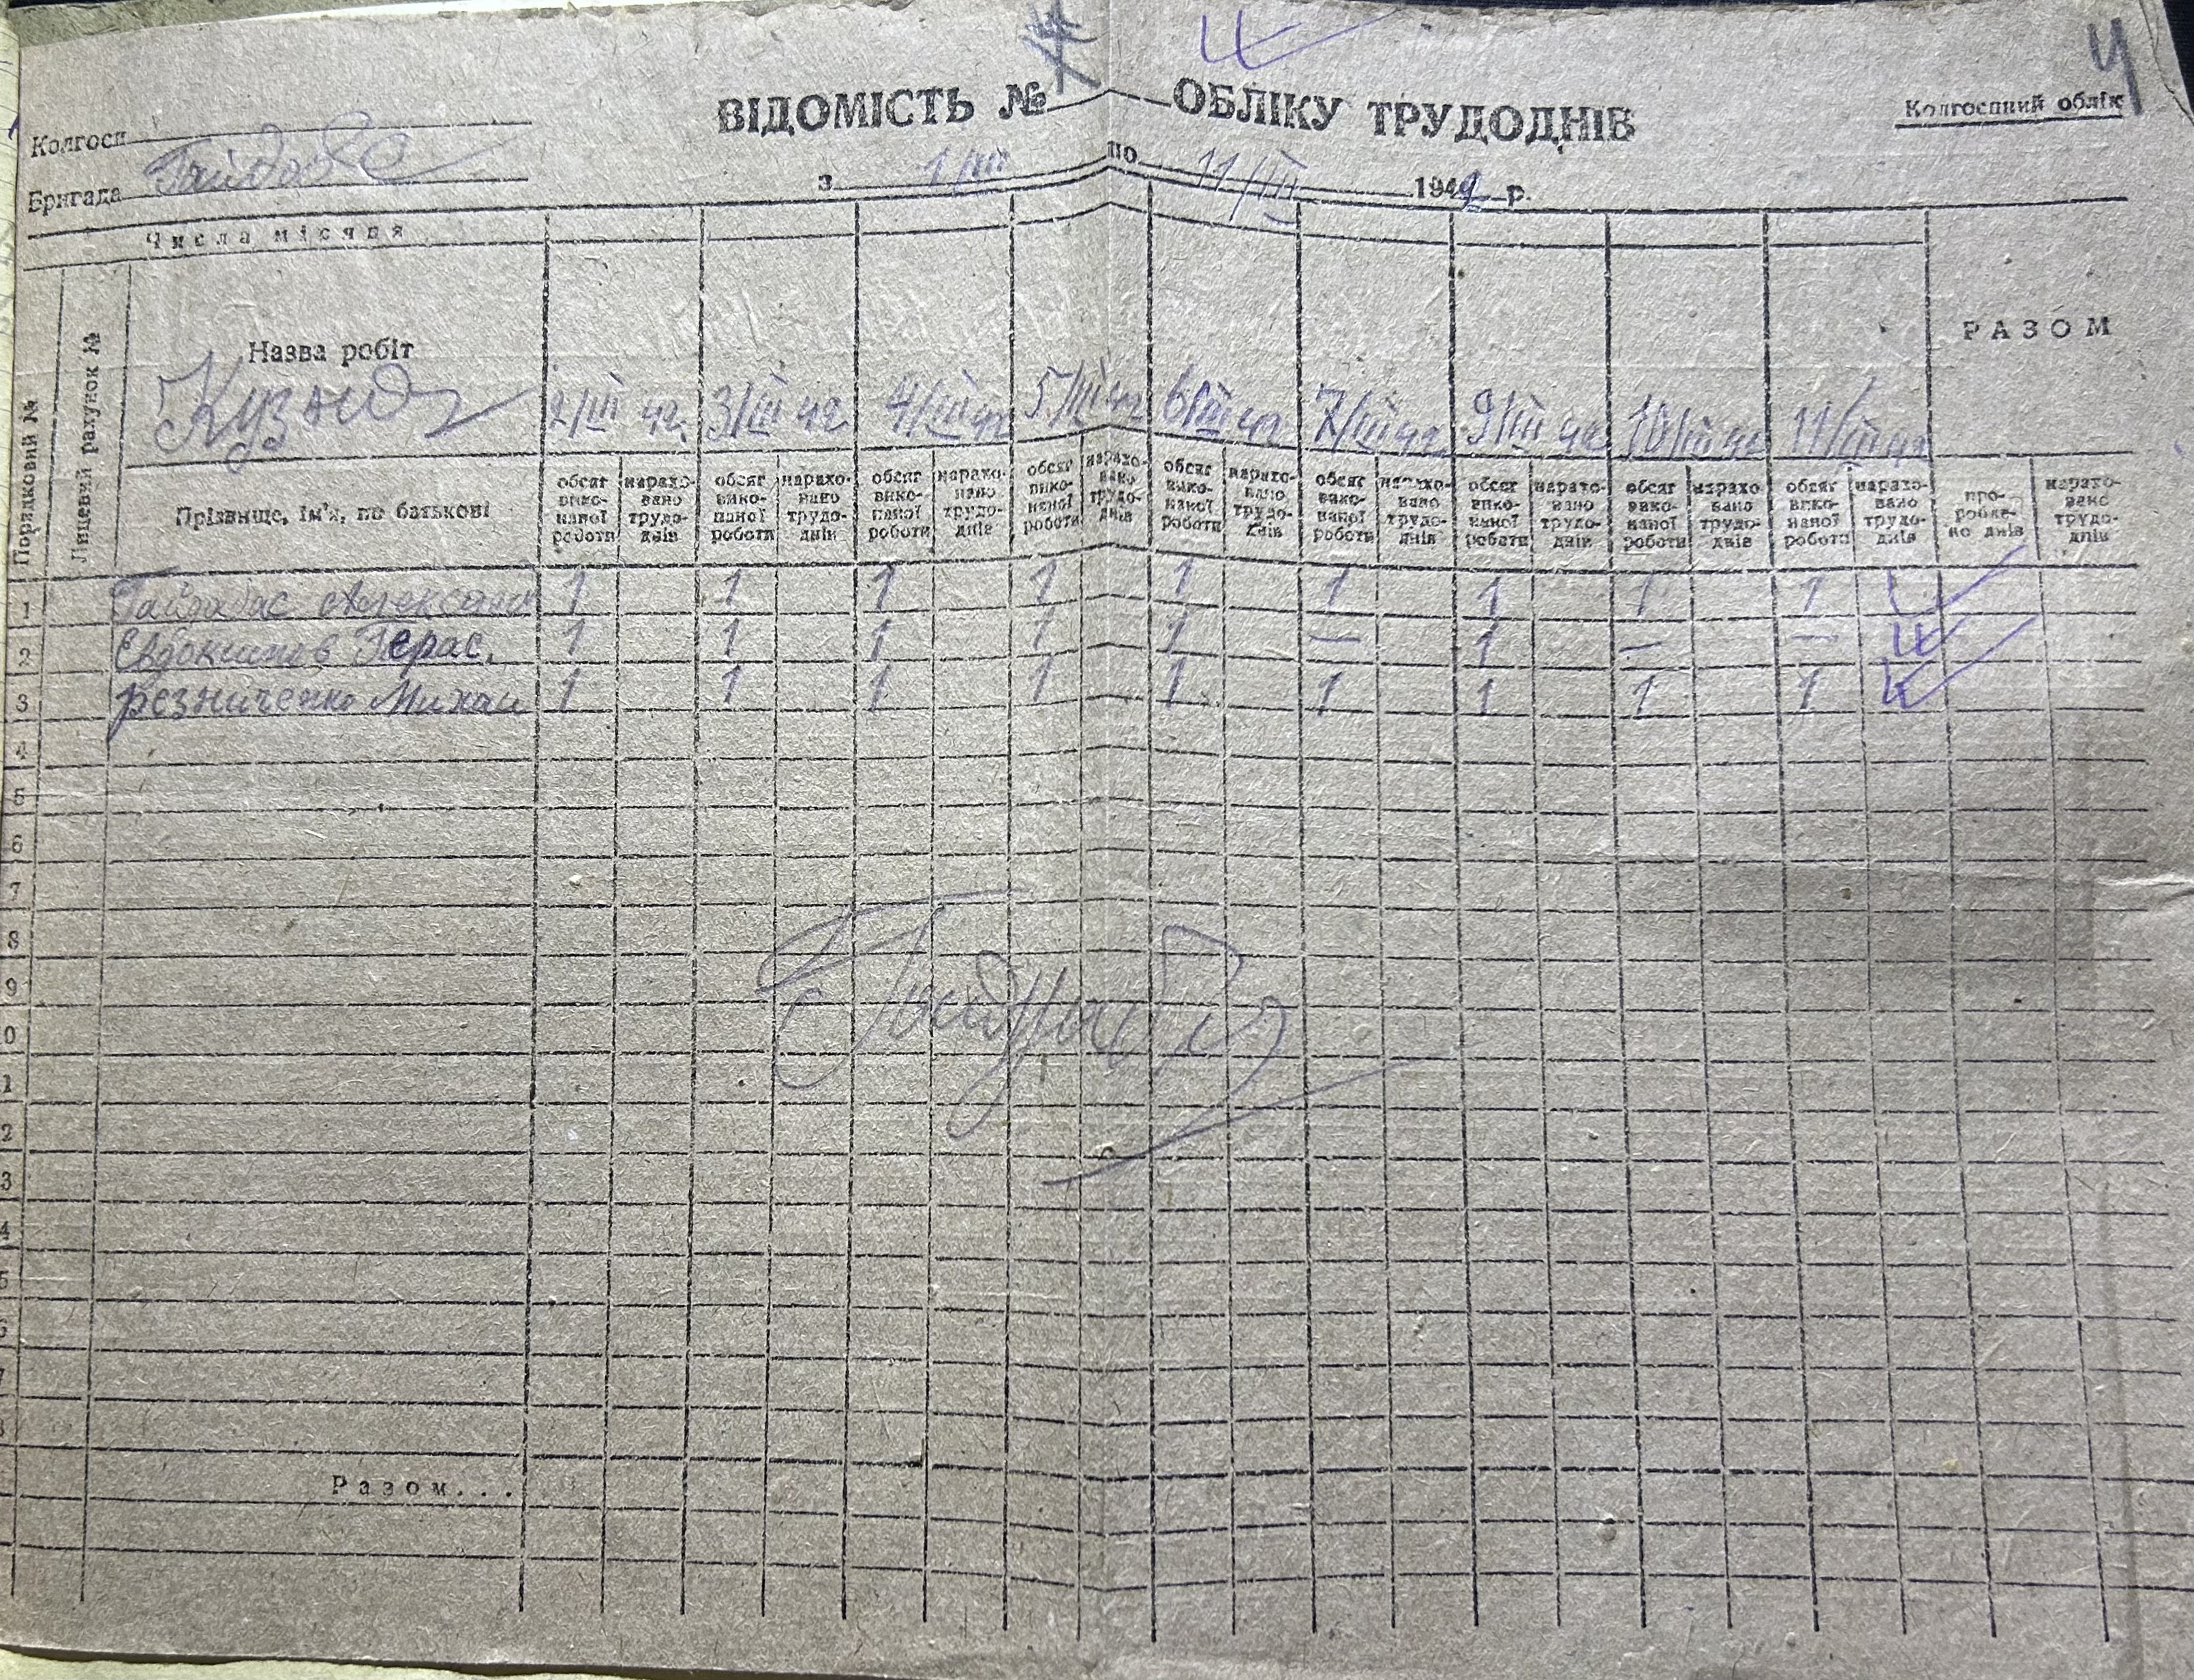 4
ВІДОМІСТЬ № ОБЛІКУ ТРУДОДНІВ
Колгоспний облік
Колгосп
Бригада
з 1/III по 11/III 1942 р.
Числа місяця
Порядковий №
Лицевий рахунок №
Назва робіт
2/III 42 3/III 42 4/III 42 5/III 42 6/III 42 7/III 42 9/III 42 10/III 42 11/III 42 РАЗОМ
Прізвище, ім'я, по батькові
обсяг виконаної роботи нараховано трудоднів обсяг виконаної роботи нараховано трудоднів обсяг виконаної роботи нараховано трудоднів обсяг виконаної роботи нараховано трудоднів обсяг виконаної роботи нараховано трудоднів обсяг виконаної роботи нараховано трудоднів обсяг виконаної роботи нараховано трудоднів обсяг виконаної роботи нараховано трудоднів обсяг виконаної роботи нараховано трудоднів проробле-но днів нараховано трудоднів
1 1 1 1 1 1 1 1 1 1
2 Евдокимов Герас. 1 1 1 1 1 — 1 — —
3 Резниченко Михаи 1 1 1 1 1 1 1 1 1
4
5
6
7
8
9
0
1
2
3
4
5
6
7
8
Разом...